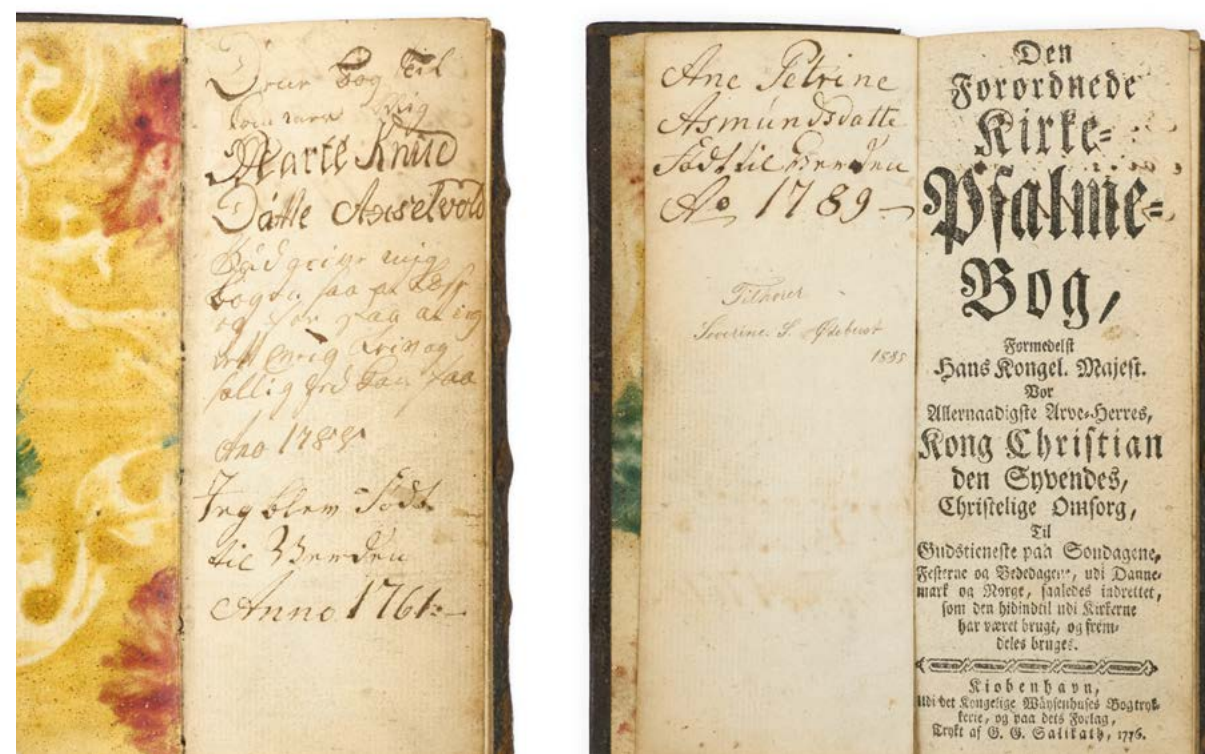 Bog Til
kommer Mig
Marte Knud
Datte Axselvold
Gud give mig
bogen saa at
og saa at ieg
Evig
sallig
Ano 178
Jeg blew Födt
til Verden
Anno 1761
Ane Petrine
Asmundsdatte
Födt til Verden
Ao 1789
Tilhører
Severine. S.
Den
Forordnede
Kirke-
Psalme-
Bog,
Formedelst
Hans Kongel. Majest.
Vor
Allernaadigste Arve-Herres,
Kong Christian
den Syvendes,
Christelige Omsorg,
Til
Gudstieneste paa Söndagene,
Festerne og Bededagene, udi Danne-
mark og Norge, saaledes indrettet,
som den hidindtil udi Kirkerne
har været brugt, og frem-
deles bruges.
Kiøbenhavn,
Udi det Kongelige Wäysenhuses Bogtryk-
kerie, og paa dets Forlag,
Trykt af G. G. Salikath, 1776.